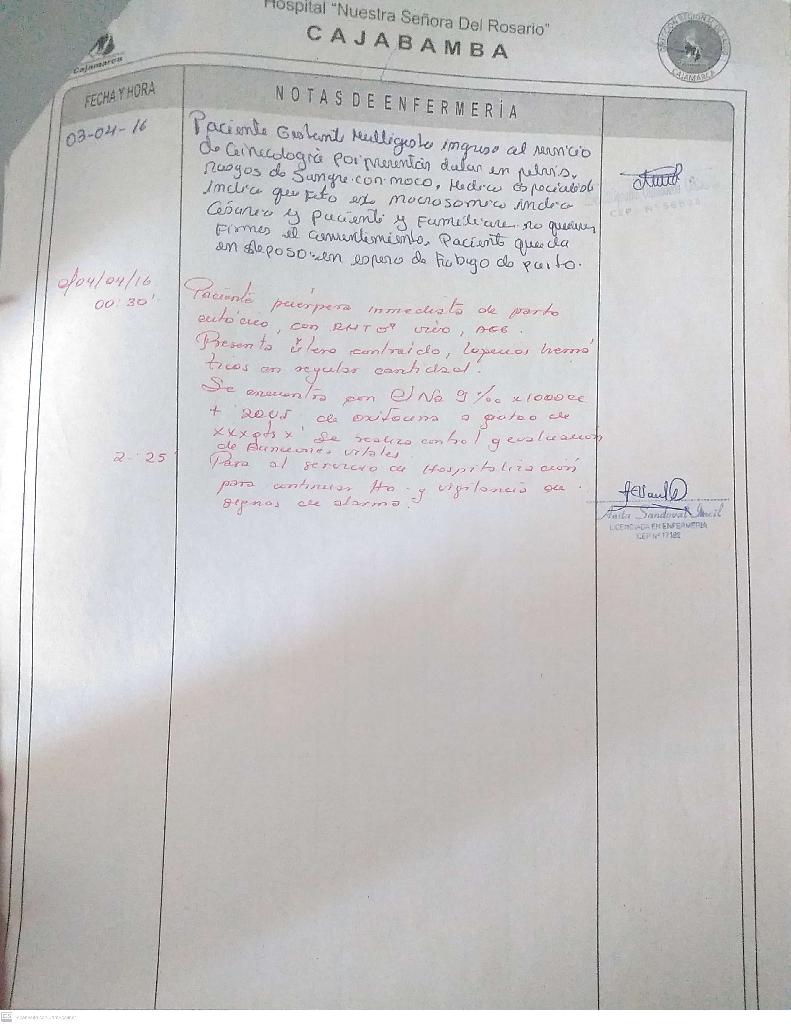 Hospital "Nuestra Señora Del Rosario"
CAJABAMBA
Cajamarca
CAJAMARCA
FECHA Y HORA
NOTAS DE ENFERMERÍA
03-04-16
Paciente Gestante Multigesta ingresa al servicio
de Ginecología por presentar dolor en pelvis,
rasgos de Sangre con moco, Medico especialista
indica que Feto es macrosomico indica
Cesarea y paciente y Familiares no quieren
Firmar el consentimiento, Paciente queda
en reposo en espera de trabajo de parto.
04/04/16
00:30'
Paciente puérpera inmediata de parto
eutócico, con RNT vivo, AEG.
Presenta útero contraído, loquios hemá
ticos en regular cantidad.
Se encuentra con ClNa 9‰ x 1000cc
+ de oxitocina a goteo de
xxx gts x' Se realiza control y evaluación
de Funciones vitales.
2:25
Pasa al servicio de Hospitalización
para continuar tto y vigilancia de
signos de alarma.
Anita Sandoval
LICENCIADA EN ENFERMERIA
CEP Nº 17182